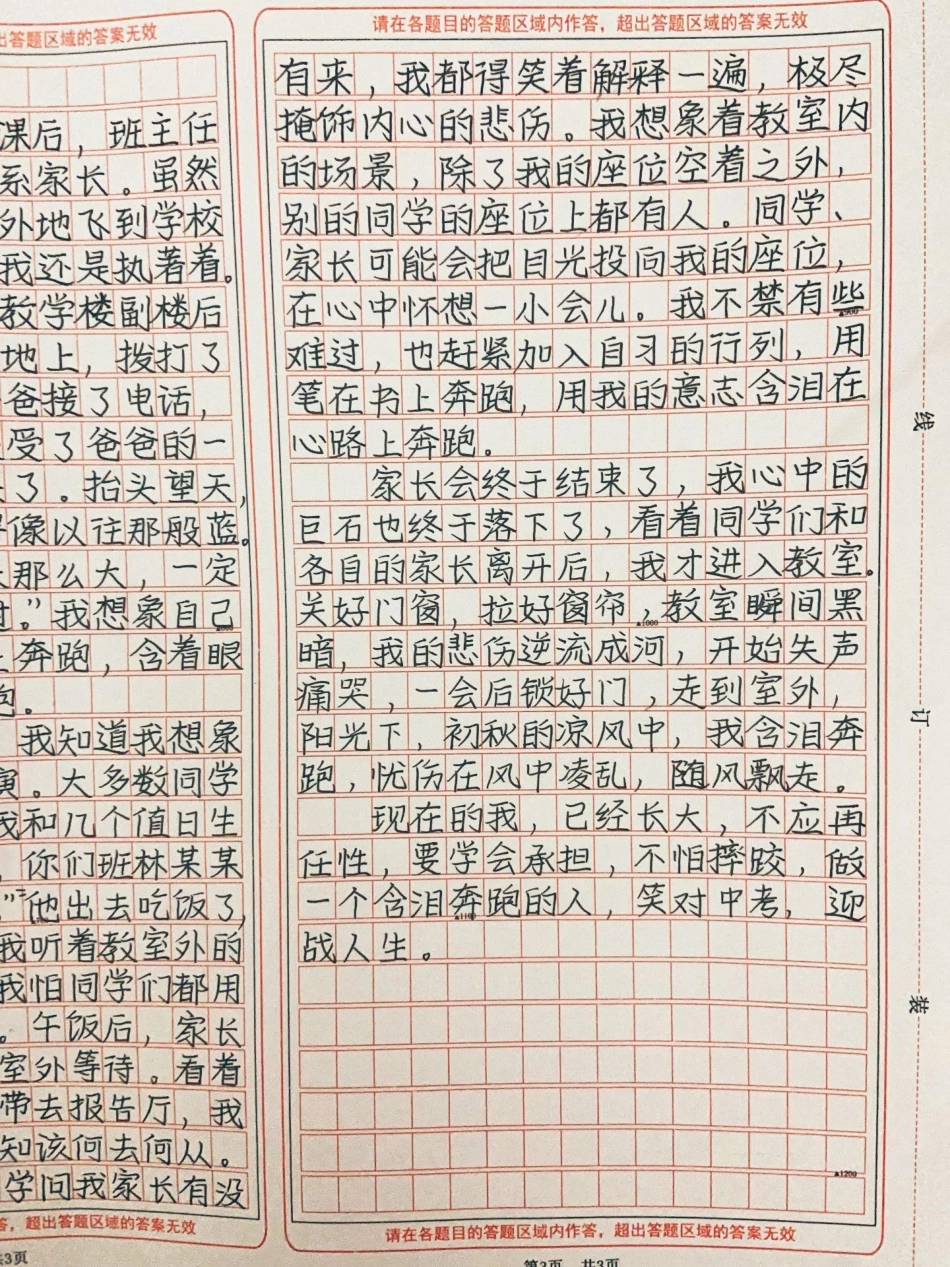 出答题区域的答案无效
课后，班主任
系家长。虽然
外地飞到学校
我还是执著着。
教学楼副楼后
地上，拨打了
爸接了电话，
受了爸爸的一
了。抬头望天，
像以往那般蓝。
那么大，一定
过。”我想象自己
奔跑，含着眼
跑。
我知道我想象
演。大多数同学
我和几个值日生
，你们班林某某
”“他出去吃饭了，
我听着教室外的
我怕同学们都用
。午饭后，家长
室外等待。看着
带去报告厅，我
知该何去何从。
学问我家长有没
答，超出答题区域的答案无效
共3页
请在各题目的答题区域内作答，超出答题区域的答案无效
有来，我都得笑着解释一遍，极尽
掩饰内心的悲伤。我想象着教室内
的场景，除了我的座位空着之外，
别的同学的座位上都有人。同学、
家长可能会把目光投向我的座位，
在心中怀想一小会儿。我不禁有些
▲900
难过，也赶紧加入自习的行列，用
笔在书上奔跑，用我的意志含泪在
心路上奔跑。
家长会终于结束了，我心中的
巨石也终于落下了，看着同学们和
各自的家长离开后，我才进入教室。
关好门窗，拉好窗帘，教室瞬间黑
▲1000
暗，我的悲伤逆流成河，开始失声
痛哭，一会后锁好门，走到室外，
阳光下，初秋的凉风中，我含泪奔
跑，忧伤在风中凌乱，随风飘走。
现在的我，已经长大，不应再
任性，要学会承担，不怕摔跤，做
一个含泪奔跑的人，笑对中考，迎
▲1100
战人生。
▲1200
请在各题目的答题区域内作答，超出答题区域的答案无效
第3页 共3页
线
订
装